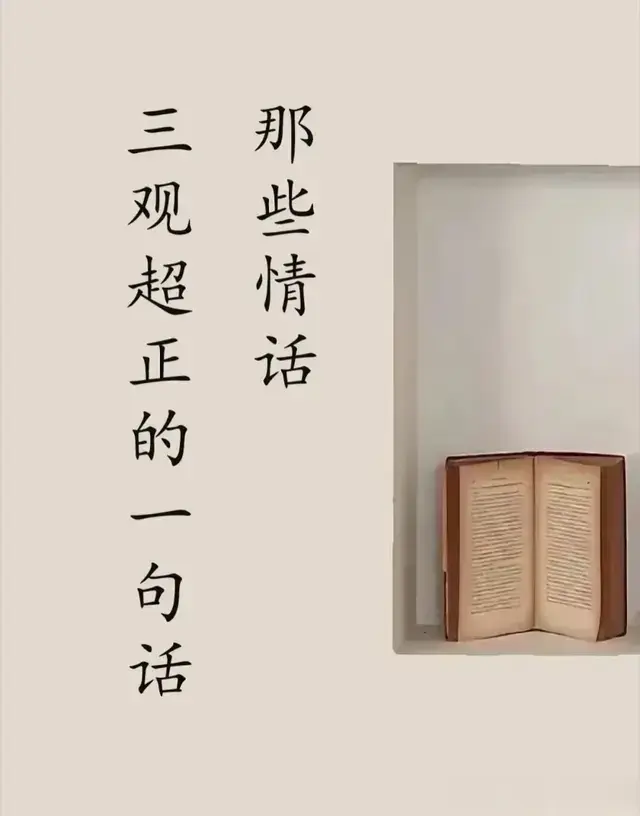 那些情话
三观超正的一句话